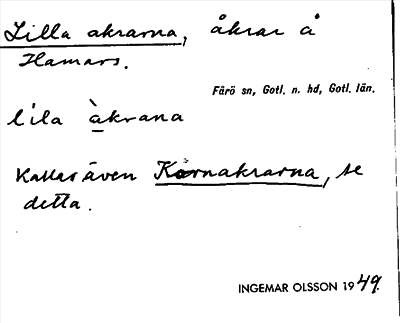 Lilla akrarna, åkrar å
Hamars.
Fårö sn, Gotl. n. hd, Gotl. län.
lila àkrana
Kallas även Kornakrarna, se
detta.
INGEMAR OLSSON 1949.